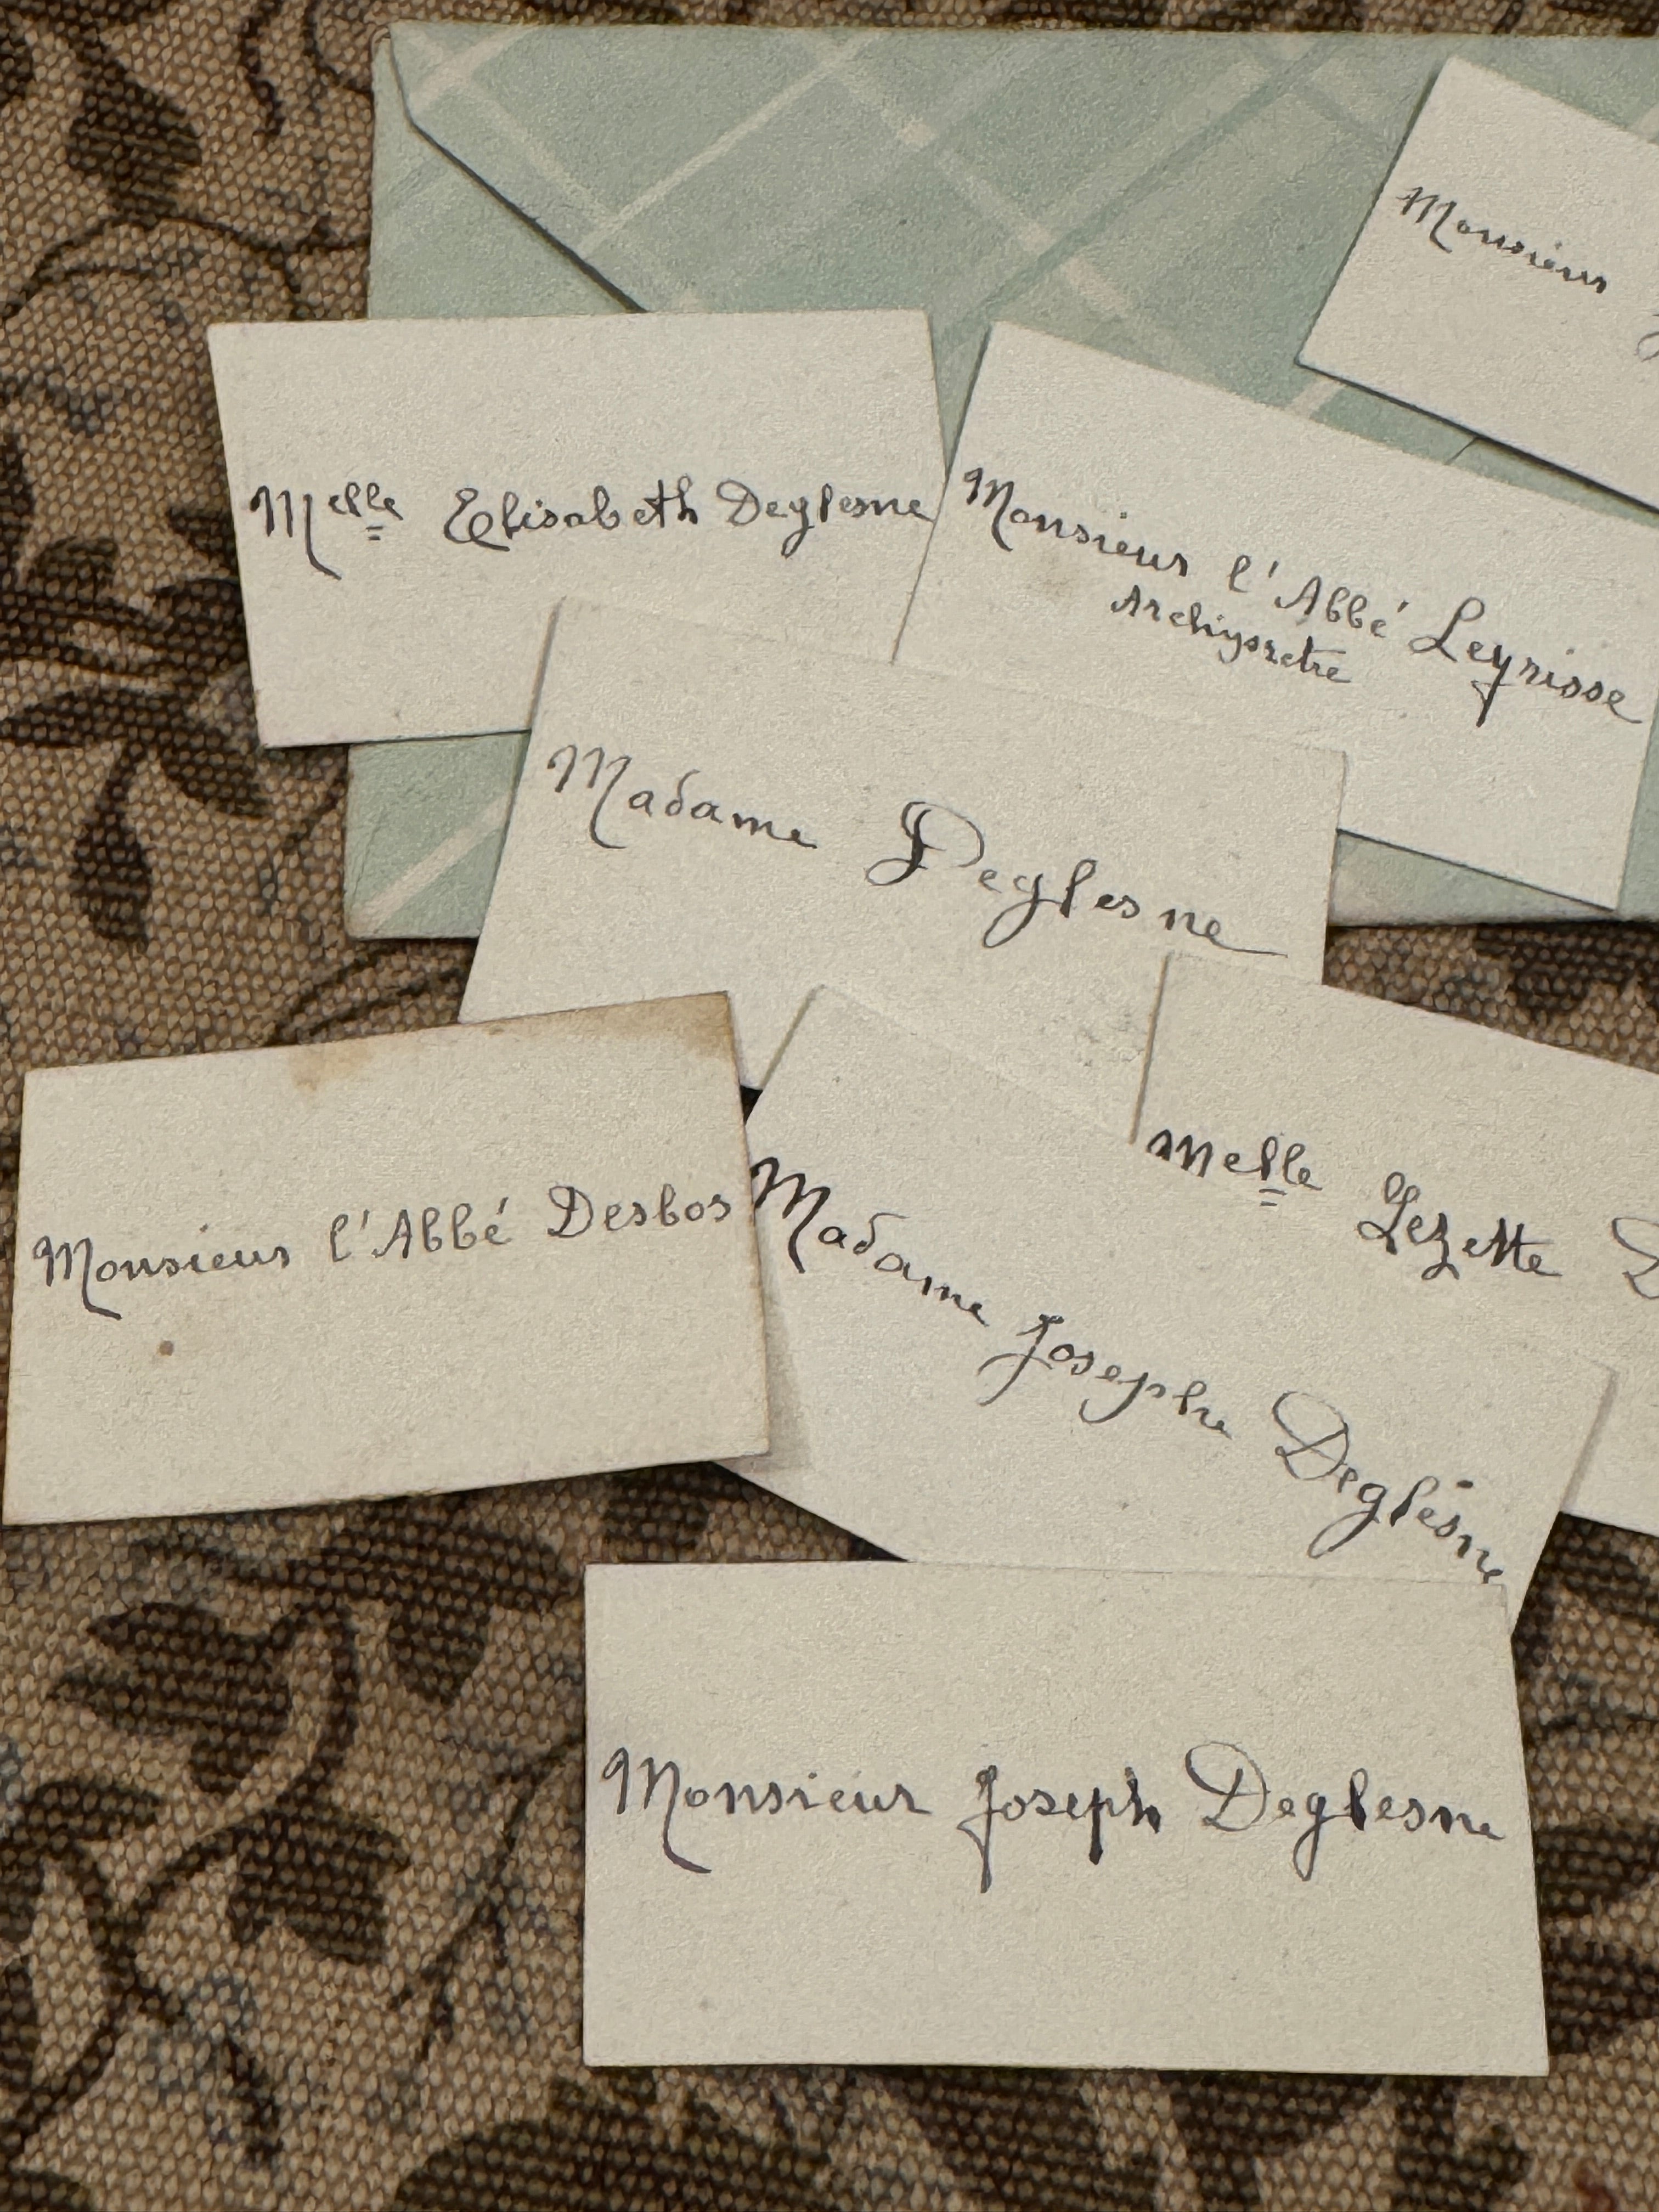 Monsieur
Melle Elisabeth Deglesne
Monsieur l'Abbé Leyrisse
Archiprêtre
Madame Deglesne
Monsieur l'Abbé Desbos
Melle Lezette
Madame Joseph Deglesne
Monsieur Joseph Deglesne